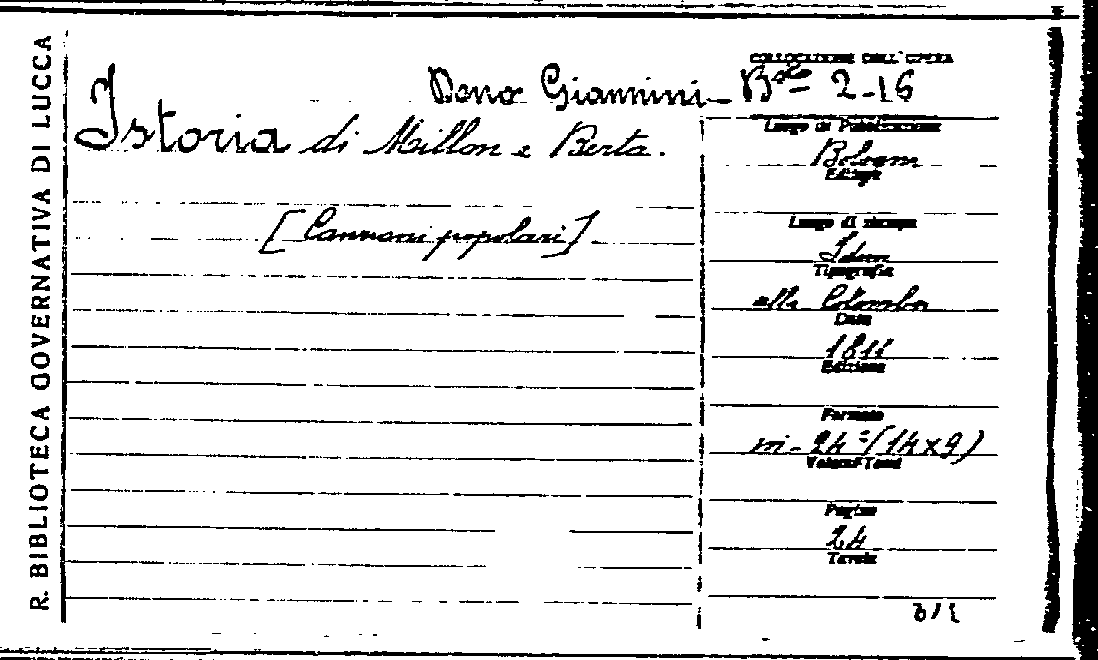 R. BIBLIOTECA GOVERNATIVA DI LUCCA
COLLOCAZIONE DELL'OPERA
Dono Giannini - 2-16
Istoria di Millon e Berta.
[Canzoni popolari]
Luogo di Pubblicazione
Bologna
Editore
Luogo di stampa
Idem
Tipografia
alla Colomba
Data
1811
Edizione
Formato
in-24°(14x9)
Volumi-Tomi
Pagine
24
Tavole